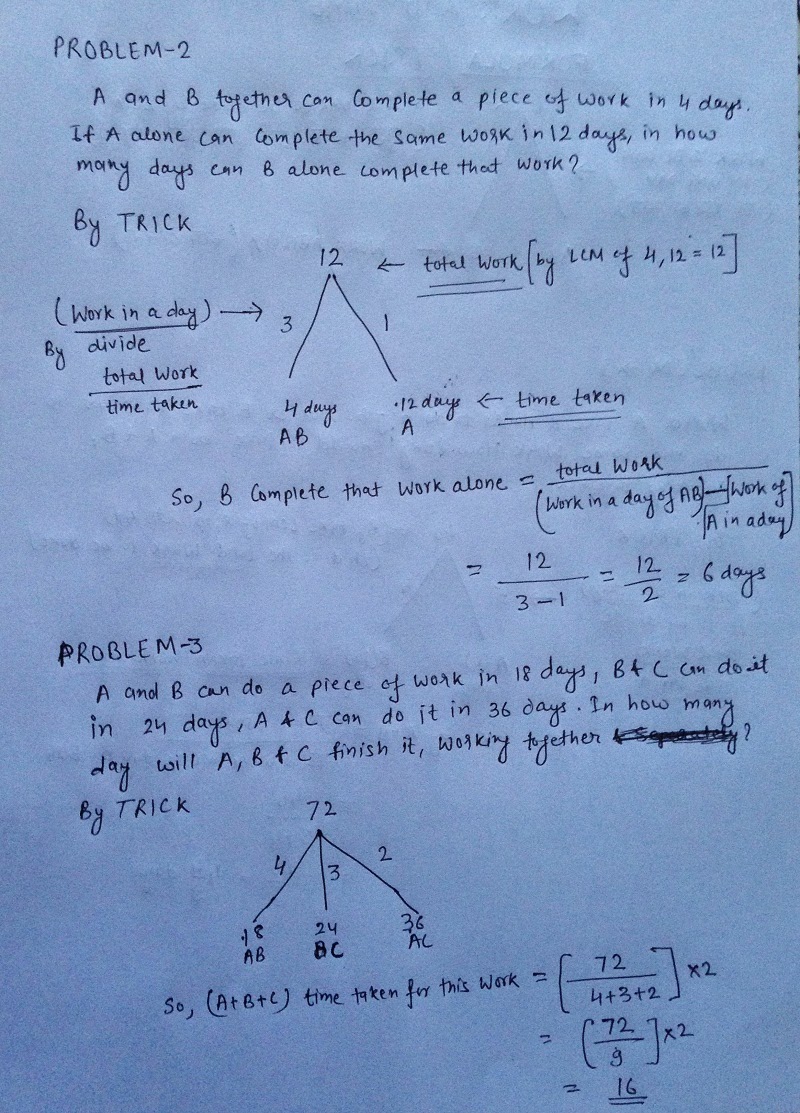 PROBLEM-2
A and B together can Complete a piece of work in 4 days.
If A alone can Complete the same work in 12 days, in how
many days can B alone complete that work?
By TRICK
12 ← total work [by LCM of 4, 12 = 12]
(Work in a day) → 3 1
By divide
total work
time taken
4 days 12 days ← time taken
AB A
So, B Complete that work alone = total work
(Work in a day of AB) - [Work of
A in a day]
= 12 / 3-1 = 12 / 2 = 6 days
PROBLEM-3
A and B can do a piece of work in 18 days, B & C can do it
in 24 days, A & C can do it in 36 days. In how many
day will A, B & C finish it, working together ?
By TRICK
72
4 3 2
18 24 36
AB BC AC
So, (A+B+C) time taken for this work = [72 / 4+3+2] ×2
= [72 / 9] ×2
= 16